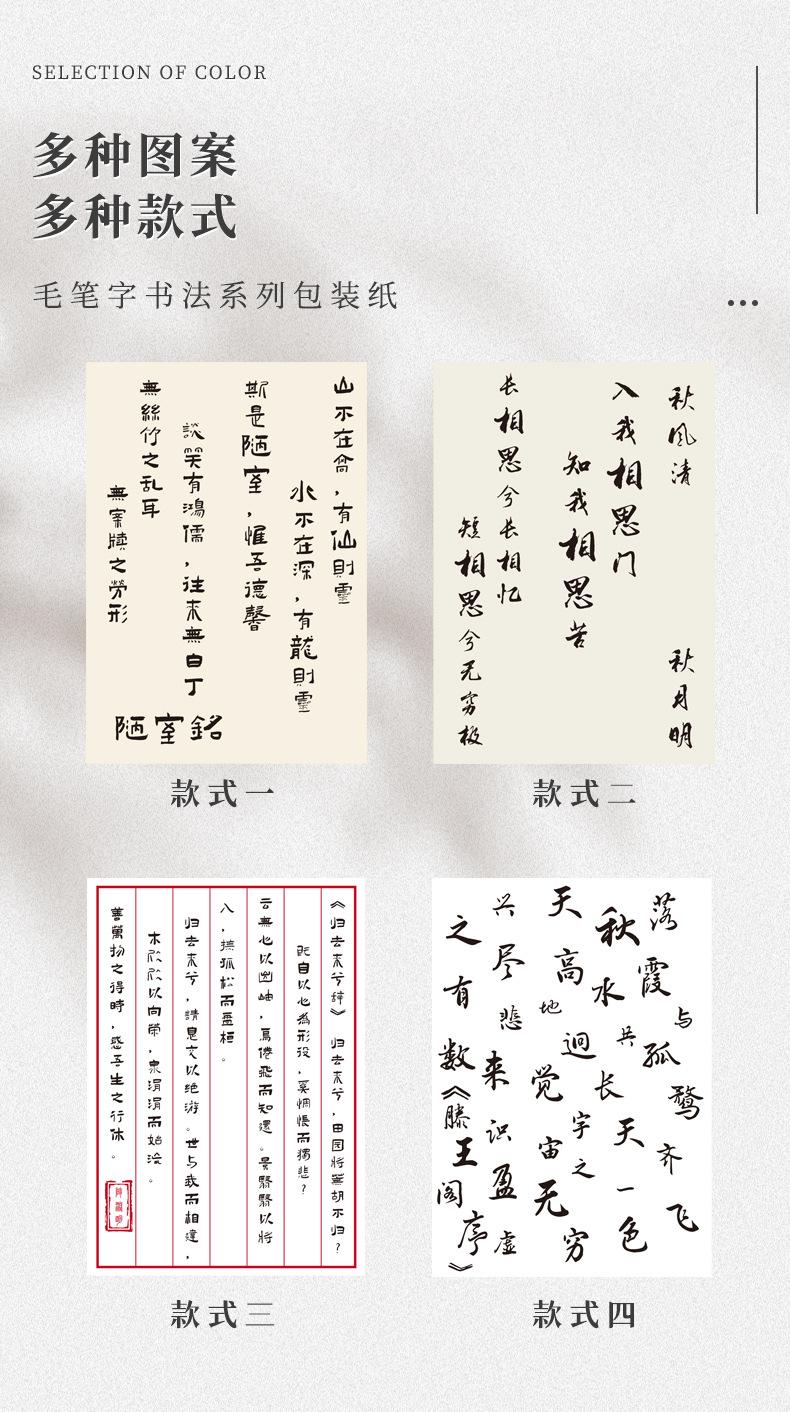 SELECTION OF COLOR
多种图案
多种款式
毛笔字书法系列包装纸
山不在高,有仙則靈
水不在深,有龍則靈
斯是陋室,惟吾德馨
談笑有鴻儒,往來無白丁
無絲竹之乱耳
無案牘之勞形
陋室銘
款式一
秋风清
秋月明
入我相思门
知我相思苦
长相思兮长相忆
短相思兮无穷极
款式二
《归去来兮辞》归去来兮,田园將蕪胡不归?
既自以心為形役,奚惆悵而獨悲?
云無心以出岫,鳥倦飛而知還。景翳翳以將
入,撫孤松而盤桓。
归去来兮,請息交以绝游。世与我而相違,
木欣欣以向榮,泉涓涓而始流。
善萬物之得時,感吾生之行休。
款式三
落霞与孤鹜齐飞
秋水共长天一色
天高地迥觉宇宙之无穷
兴尽悲来识盈虚
之有数《滕王阁序》
款式四